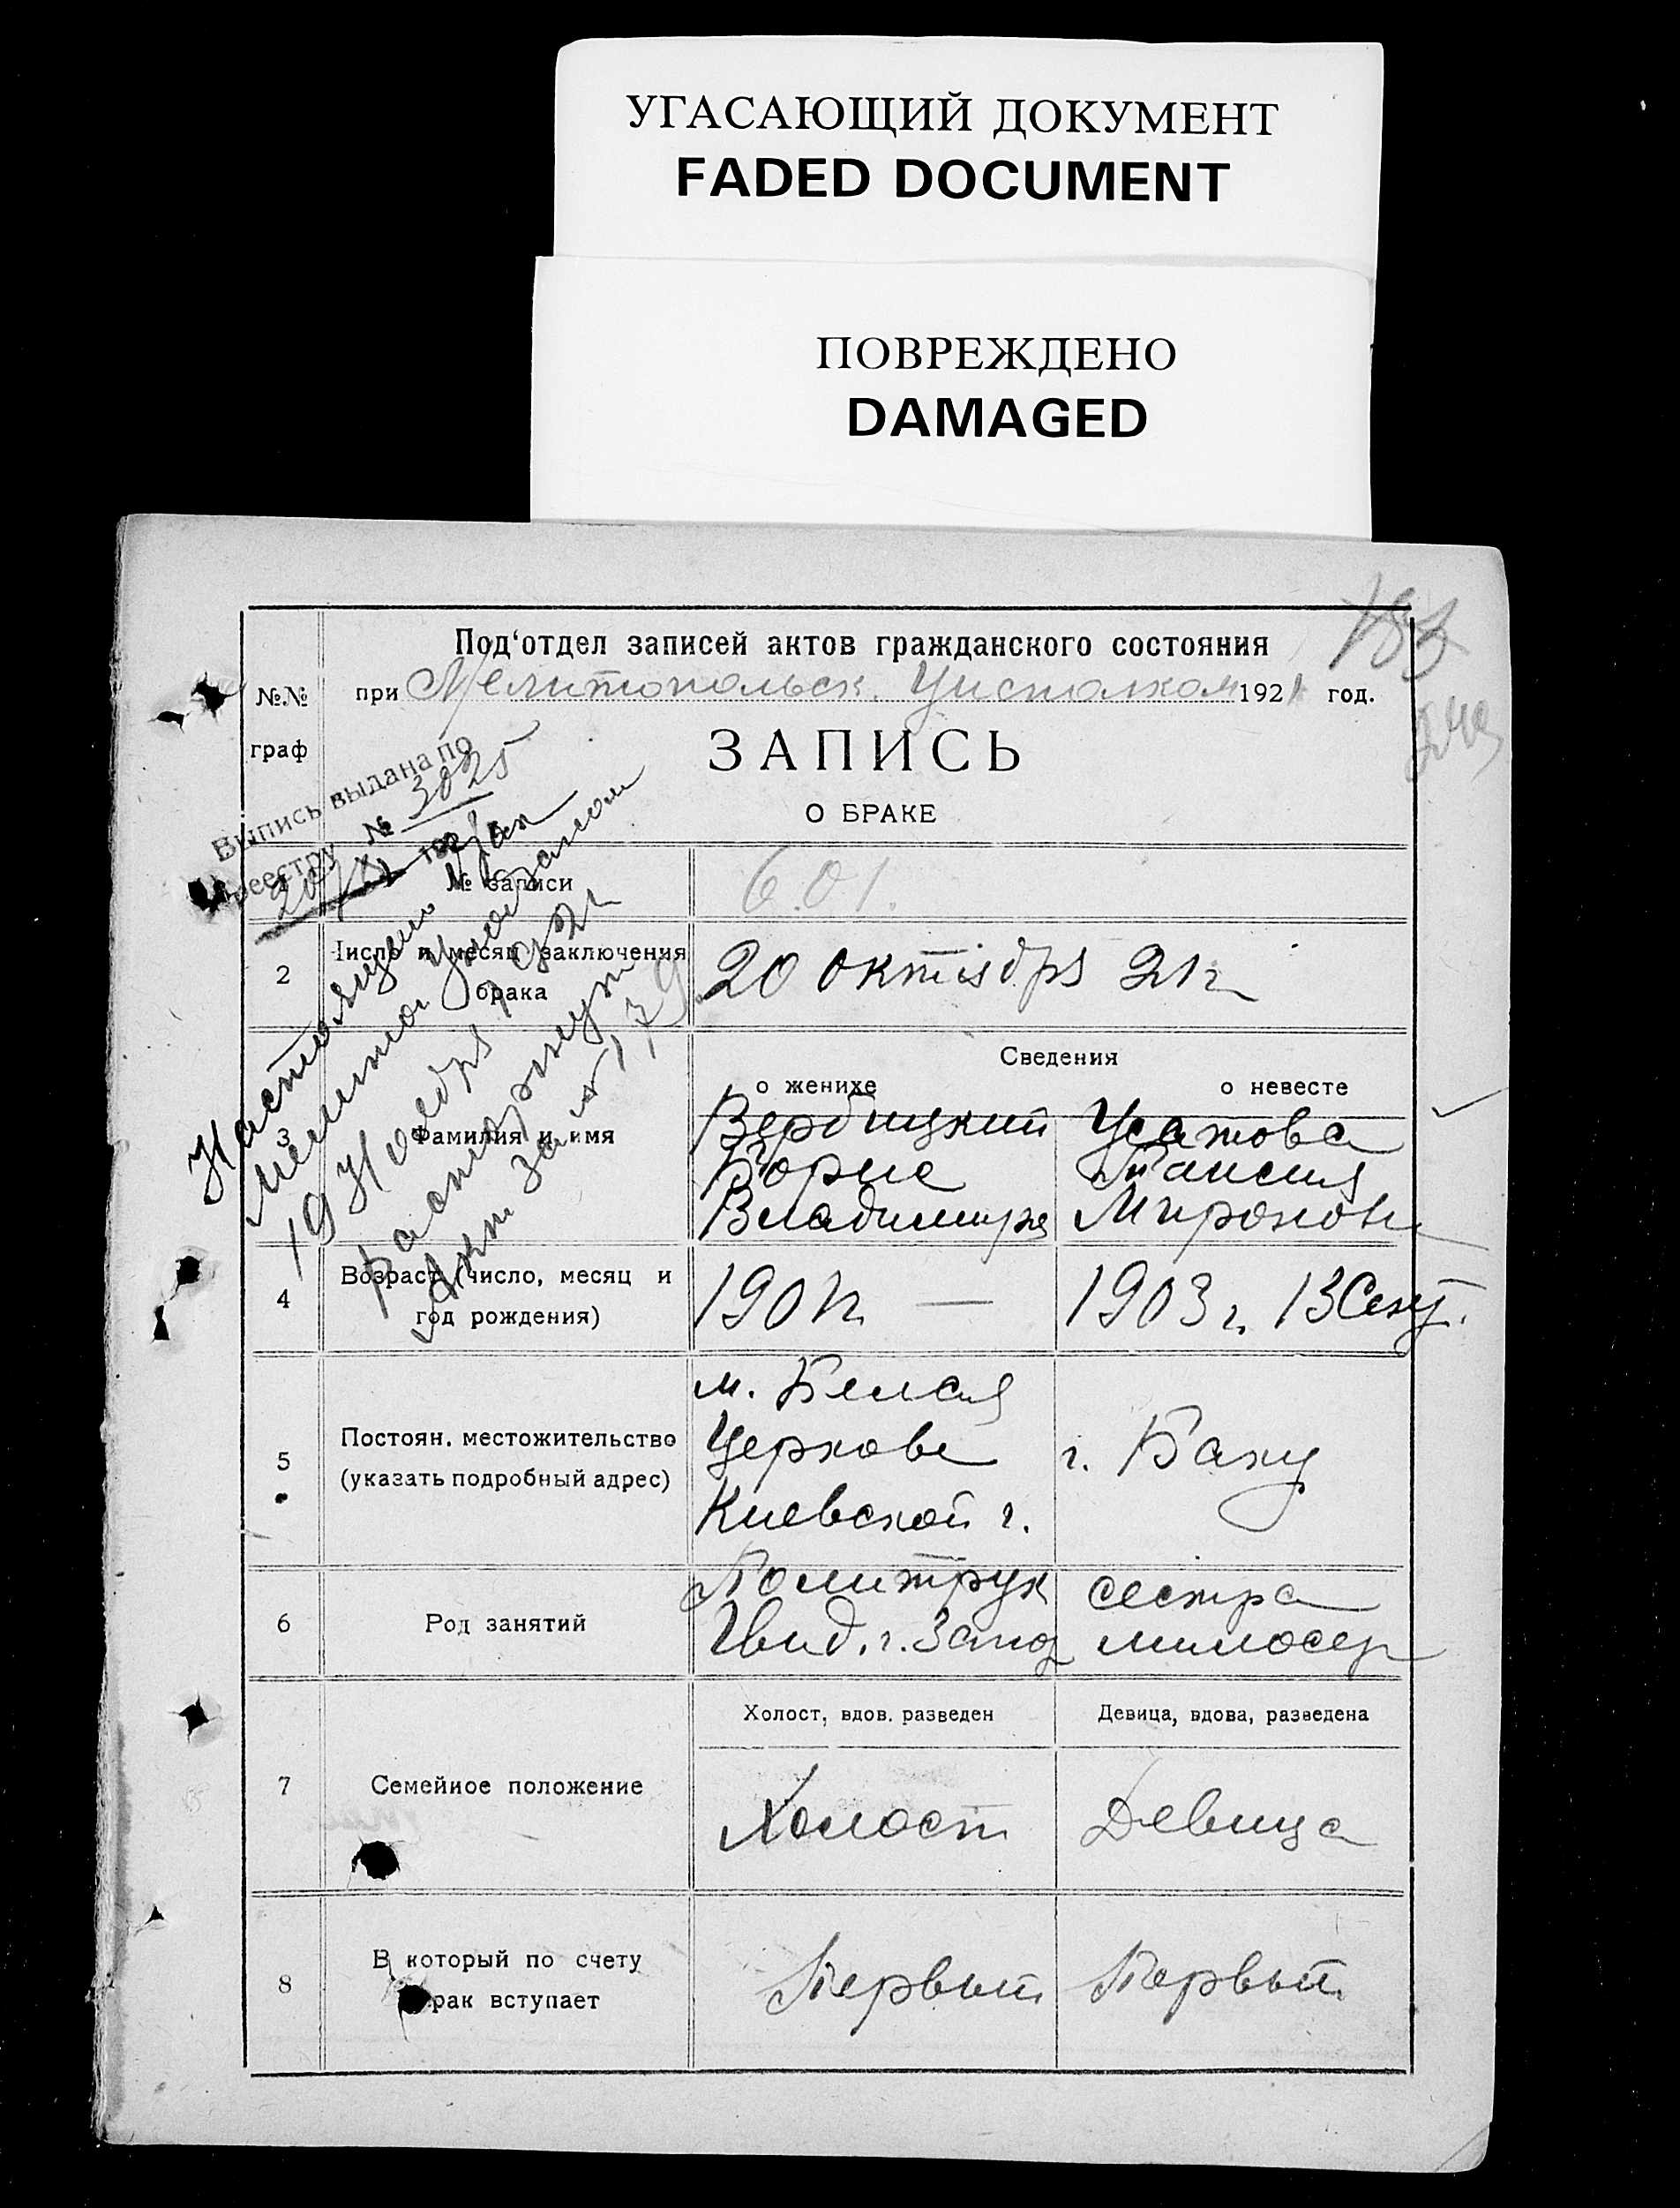 УГАСАЮЩИЙ ДОКУМЕНТ
FADED DOCUMENT
ПОВРЕЖДЕНО
DAMAGED
183
Под‘отдел записей актов гражданского состояния
при Мелитопольск. Уисполком 1921 год.
№№
граф
ЗАПИСЬ
О БРАКЕ
Выпись выдана по
реестру № 3025
Настоящий брак
Мелитоп.
19 Ноября 192
расторгнут
Акт за № 179.
№ записи
601.
2
Число и месяц заключения
брака
20 октября 21г
Сведения
о женихе
о невесте
3
Фамилия и имя
Вербицкий
Борис
Владимиров
Усатова
Таисия
Миронов
4
Возраст (число, месяц и
год рождения)
1901г. —
1903 г. 13 Сент.
5
Постоян. местожительство
(указать подробный адрес)
м. Белая
Церковь
Киевской г.
г. Баку
6
Род занятий
Политрук
сестра
милосер
7
Семейное положение
Холост, вдов. разведен
Девица, вдова, разведена
Холост
Девица
8
В который по счету
рак вступает
Первый
Первый